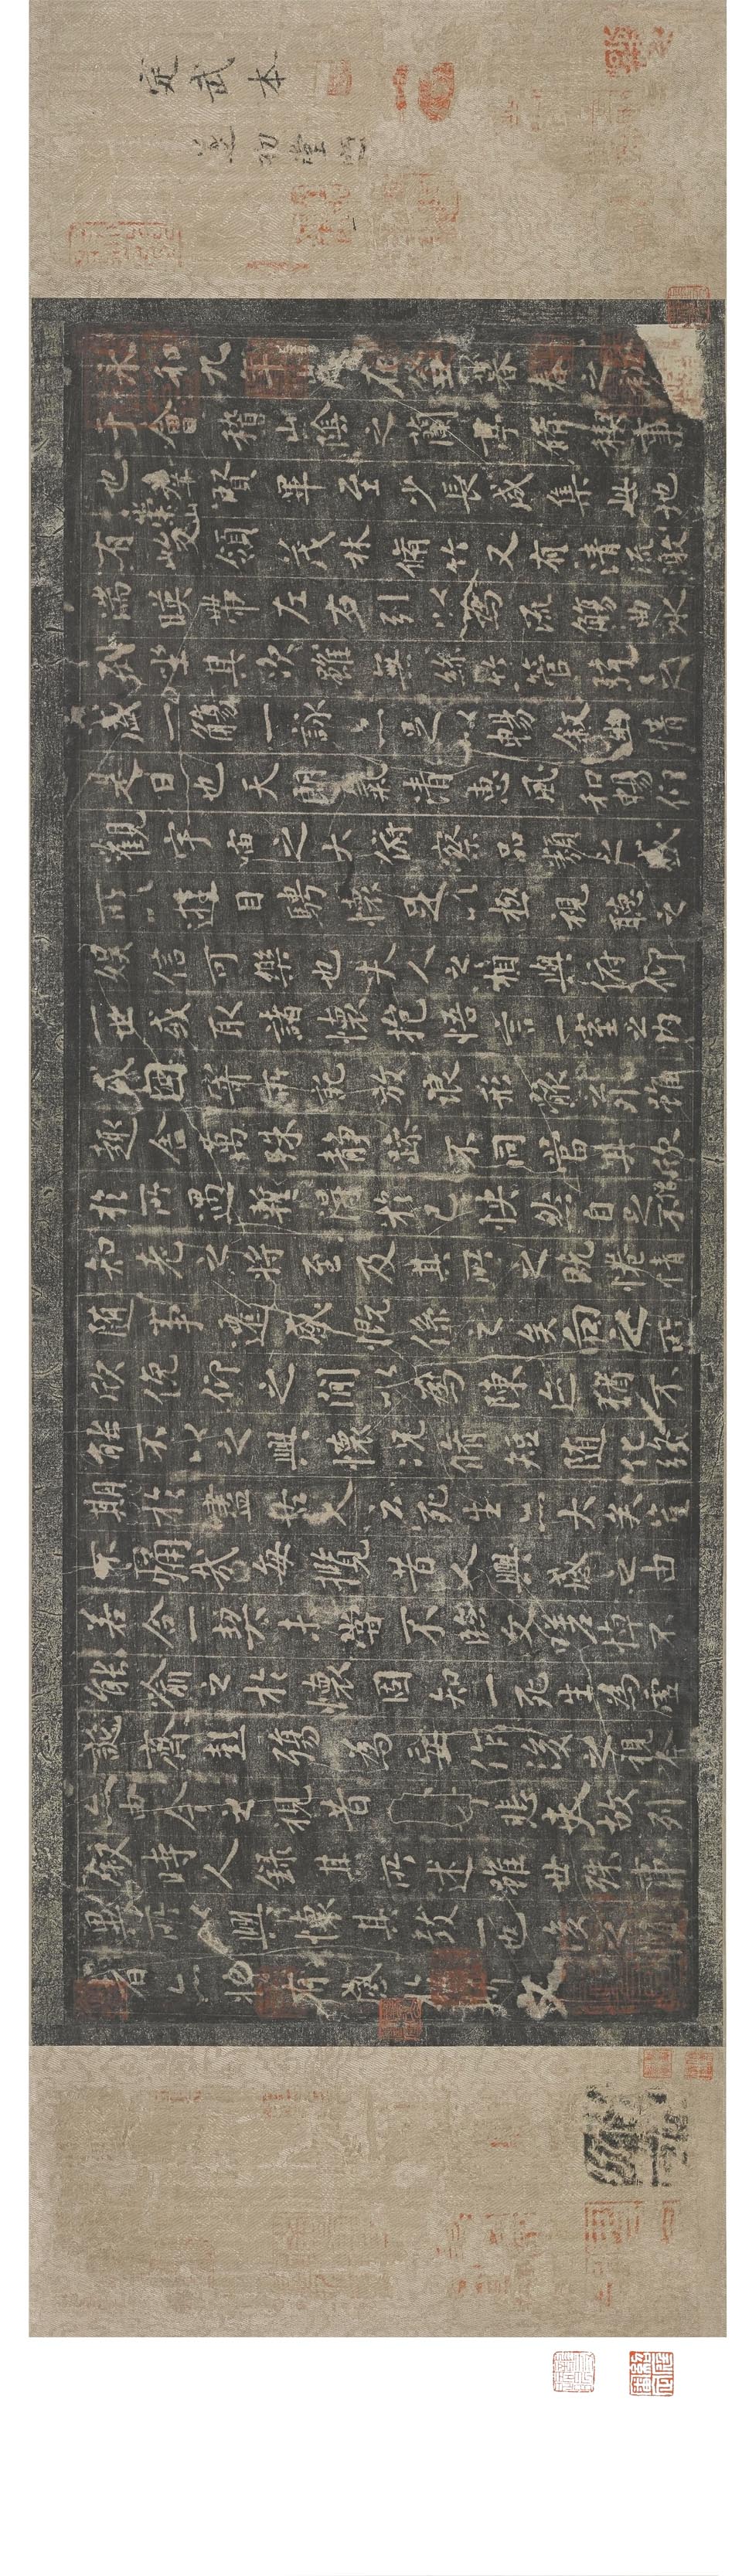 定武本
永和九年歲在癸丑暮春之初
于會稽山陰之蘭亭脩稧事
也群賢畢至少長咸集此地
有崇山峻領茂林脩竹又有清流激
湍暎帶左右引以為流觴曲水
列坐其次雖無絲竹管弦之
盛一觴一詠亦足以暢敘幽情
是日也天朗氣清惠風和暢仰
觀宇宙之大俯察品類之盛
所以遊目騁懷足以極視聽之
娛信可樂也夫人之相與俯仰
一世或取諸懷抱悟言一室之內
或因寄所託放浪形骸之外雖
趣舍萬殊靜躁不同當其欣
於所遇蹔得於己快然自足不
知老之將至及其所之既惓情
隨事遷感慨係之矣向之所
欣俛仰之間以為陳迹猶不
能不以之興懷況脩短隨化終
期於盡古人云死生亦大矣豈
不痛哉每攬昔人興感之由
若合一契未嘗不臨文嗟悼不
能喻之於懷固知一死生為虛
誕齊彭殤為妄作後之視今
亦由今之視昔悲夫故列
敘時人錄其所述雖世殊事
異所以興懷其致一也後之攬
者亦將有感於斯文